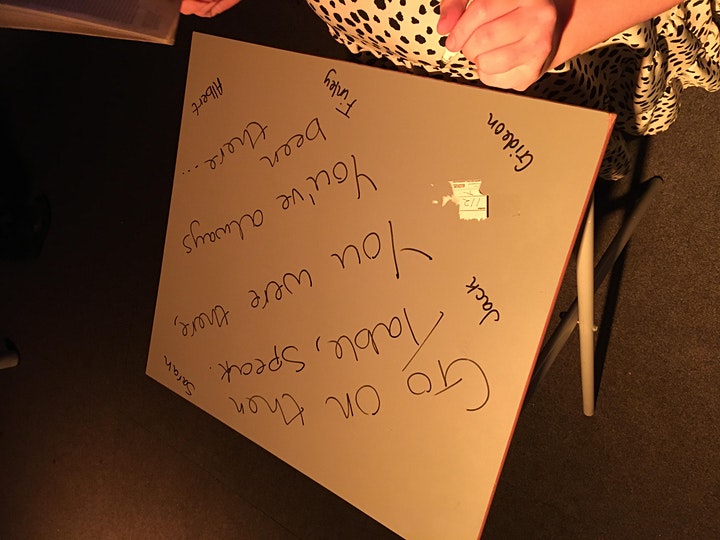 Go on then
Table, Speak.
You were there,
You've always
been there...
Albert
Finley
Gideon
Jack
Sarah